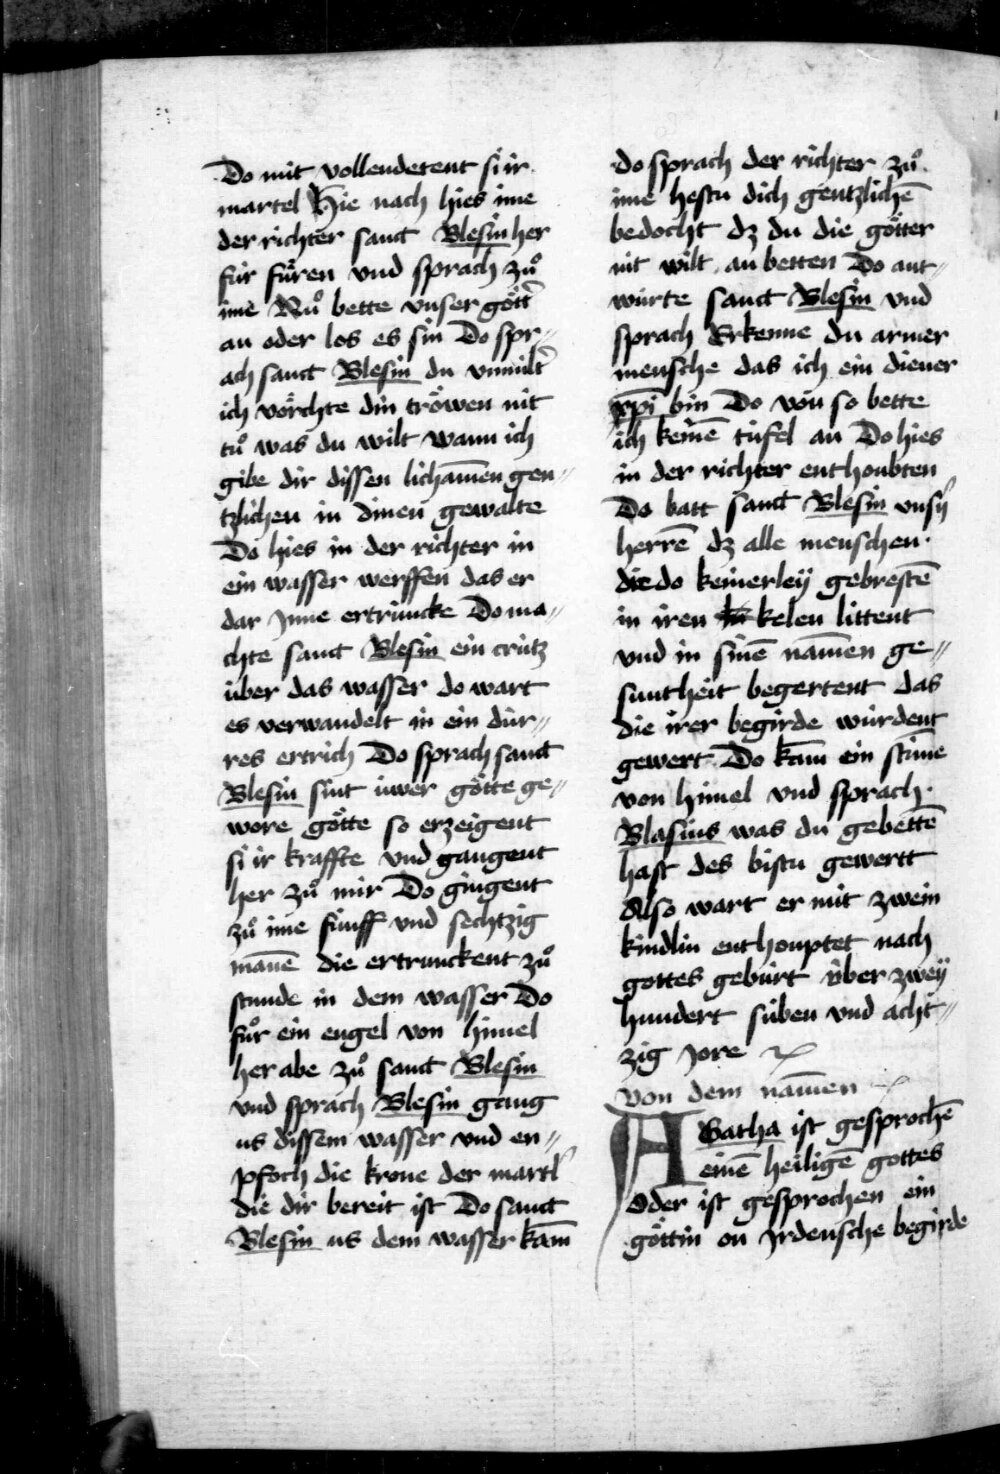 Do mit vollendetent si ir
martel Hie nach hies ime
der richter sanct Blesin her
für fu̍ren vnd sprach zuͦ
ime Nuͦ bette vnser gött͛
an oder los es sin Do spr„
ach sanct Blesin du vnmilt͛
ich vörchte din tröwen nit
tuͦ was du wilt wann ich
gibe dir dissen lichāmen gen„
tzlichen in dinen gewalte
Do hies in der richter in
ein wasser werffen das er
dar jnne ertrincke Do ma„
chte sanct Blesin ein crütz
über das wasser do wart
es verwandelt in ein dür„
res ertrich Do sprach sanct
Blesin sint üwer götte ge„
wore götte so erzeigent
si ir kraffte vnd gangent
her zuͦ mir Do gingent
zuͦ ime fünff vnd sechtzig
māne die ertrunckent zuͦ
stunde in dem wasser Do
fuͦr ein engel von himel
her abe zuͦ sanct Blesin
vnd sprach Blesin gang
us dissem wasser vnd en„
pfoch die krone der martl͛
die dir bereit ist Do sanct
Blesin us dem wasser kām
do sprach der richter zuͦ
ime hestu dich gentzlichē
bedocht dz du die götter
nit wilt an betten Do ant„
würte sanct Blesin vnd
sprach Erkenne du armer
mensche das ich ein diener
xp̄i bin Do von so bette
ich keinē tüfel an Do hies
in der richter enthoubten
Do batt sanct Blesin vnsn͛
herrē dz alle menschen
die do keinerleÿ gebrestē
in iren kelen littent
vnd in sinē nāmen ge„
suntheit begertent das
die irer begirde würdent
gewert Do kām ein stīme
von himel vnd sprach
Blasius was du gebettē
hast des bistu gewertt
Also wart er mit zwein
kindlin enthouptet nach
gottes gebürt über zweÿ
hundert süben vnd acht„
zig jore
von dem nāmen
AGatha ist gesprochē
einē heiligē gottes
Oder ist gesprochen ein
göttin on jrdensche begirde